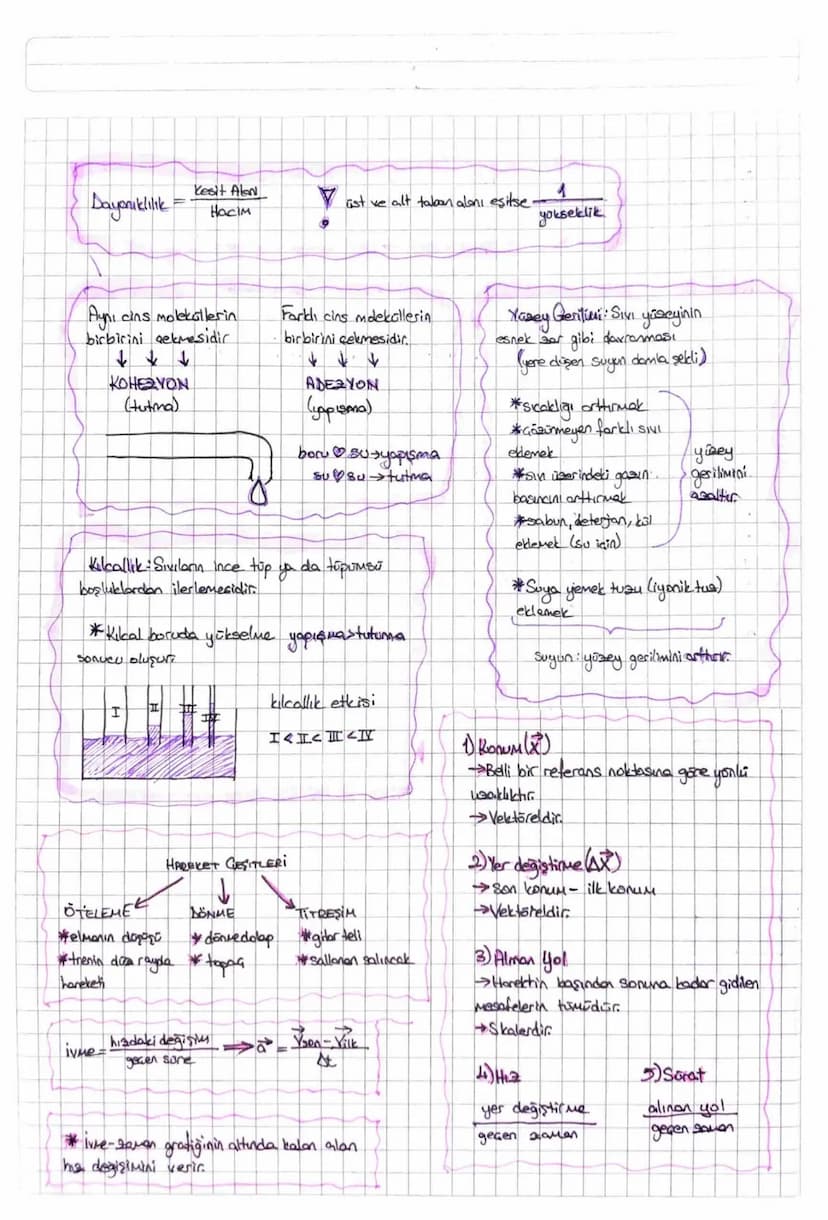 Dayanıklılık = Kesit Alan / Hacim
! üst ve alt taban alanı eşitse 1 / yükseklik
Aynı cins moleküllerin
birbirini çekmesidir
↓ ↓ ↓
KOHEZYON
(tutma)
Farklı cins moleküllerin
birbirini çekmesidir.
↓ ↓ ↓
ADEZYON
(yapışma)
boru ♡ su → yapışma
su ♡ su → tutma
Yüzey Gerilimi: Sıvı yüzeyinin
esnek zar gibi davranması
(yere düşen suyun damla şekli)
*sıcaklığı arttırmak
*çözünmeyen farklı sıvı
eklemek
*sıvı üzerindeki gazın
basıncını arttırmak
*sabun, deterjan, kül
eklemek (su için)
yüzey
gerilimini
azaltır.
*Suya yemek tuzu (iyonik tuz)
eklemek
suyun: yüzey gerilimini arttırır.
Kılcallık: Sıvıların ince tüp ya da tüpümsü
boşluklardan ilerlemesidir.
*Kılcal boruda yükselme yapışma > tutunma
sonucu oluşur.
I II III IV
kılcallık etkisi
I < II < III < IV
HAREKET ÇEŞİTLERİ
ÖTELEME
*elmanın düşüşü
*trenin düz rayda
hareketi
DÖNME
*dönmedolap
*topaç
TİTREŞİM
*gitar teli
*sallanan salıncak
ivme = hızdaki değişim / geçen süre ⟹ a⃗ = V⃗son - V⃗ilk / Δt
*İvme-zaman grafiğinin altında kalan alan
hız değişimini verir.
1) Konum (x⃗)
→Belli bir referans noktasına göre yönlü
uzaklıktır.
→Vektöreldir.
2) Yer değiştirme (Δx⃗)
→Son konum - ilk konum
→Vektöreldir.
3) Alınan Yol
→Harektin başından sonuna kadar gidilen
mesafelerin tümüdür.
→Skalerdir.
4) Hız
yer değiştirme
geçen zaman
5) Sürat
alınan yol
geçen zaman